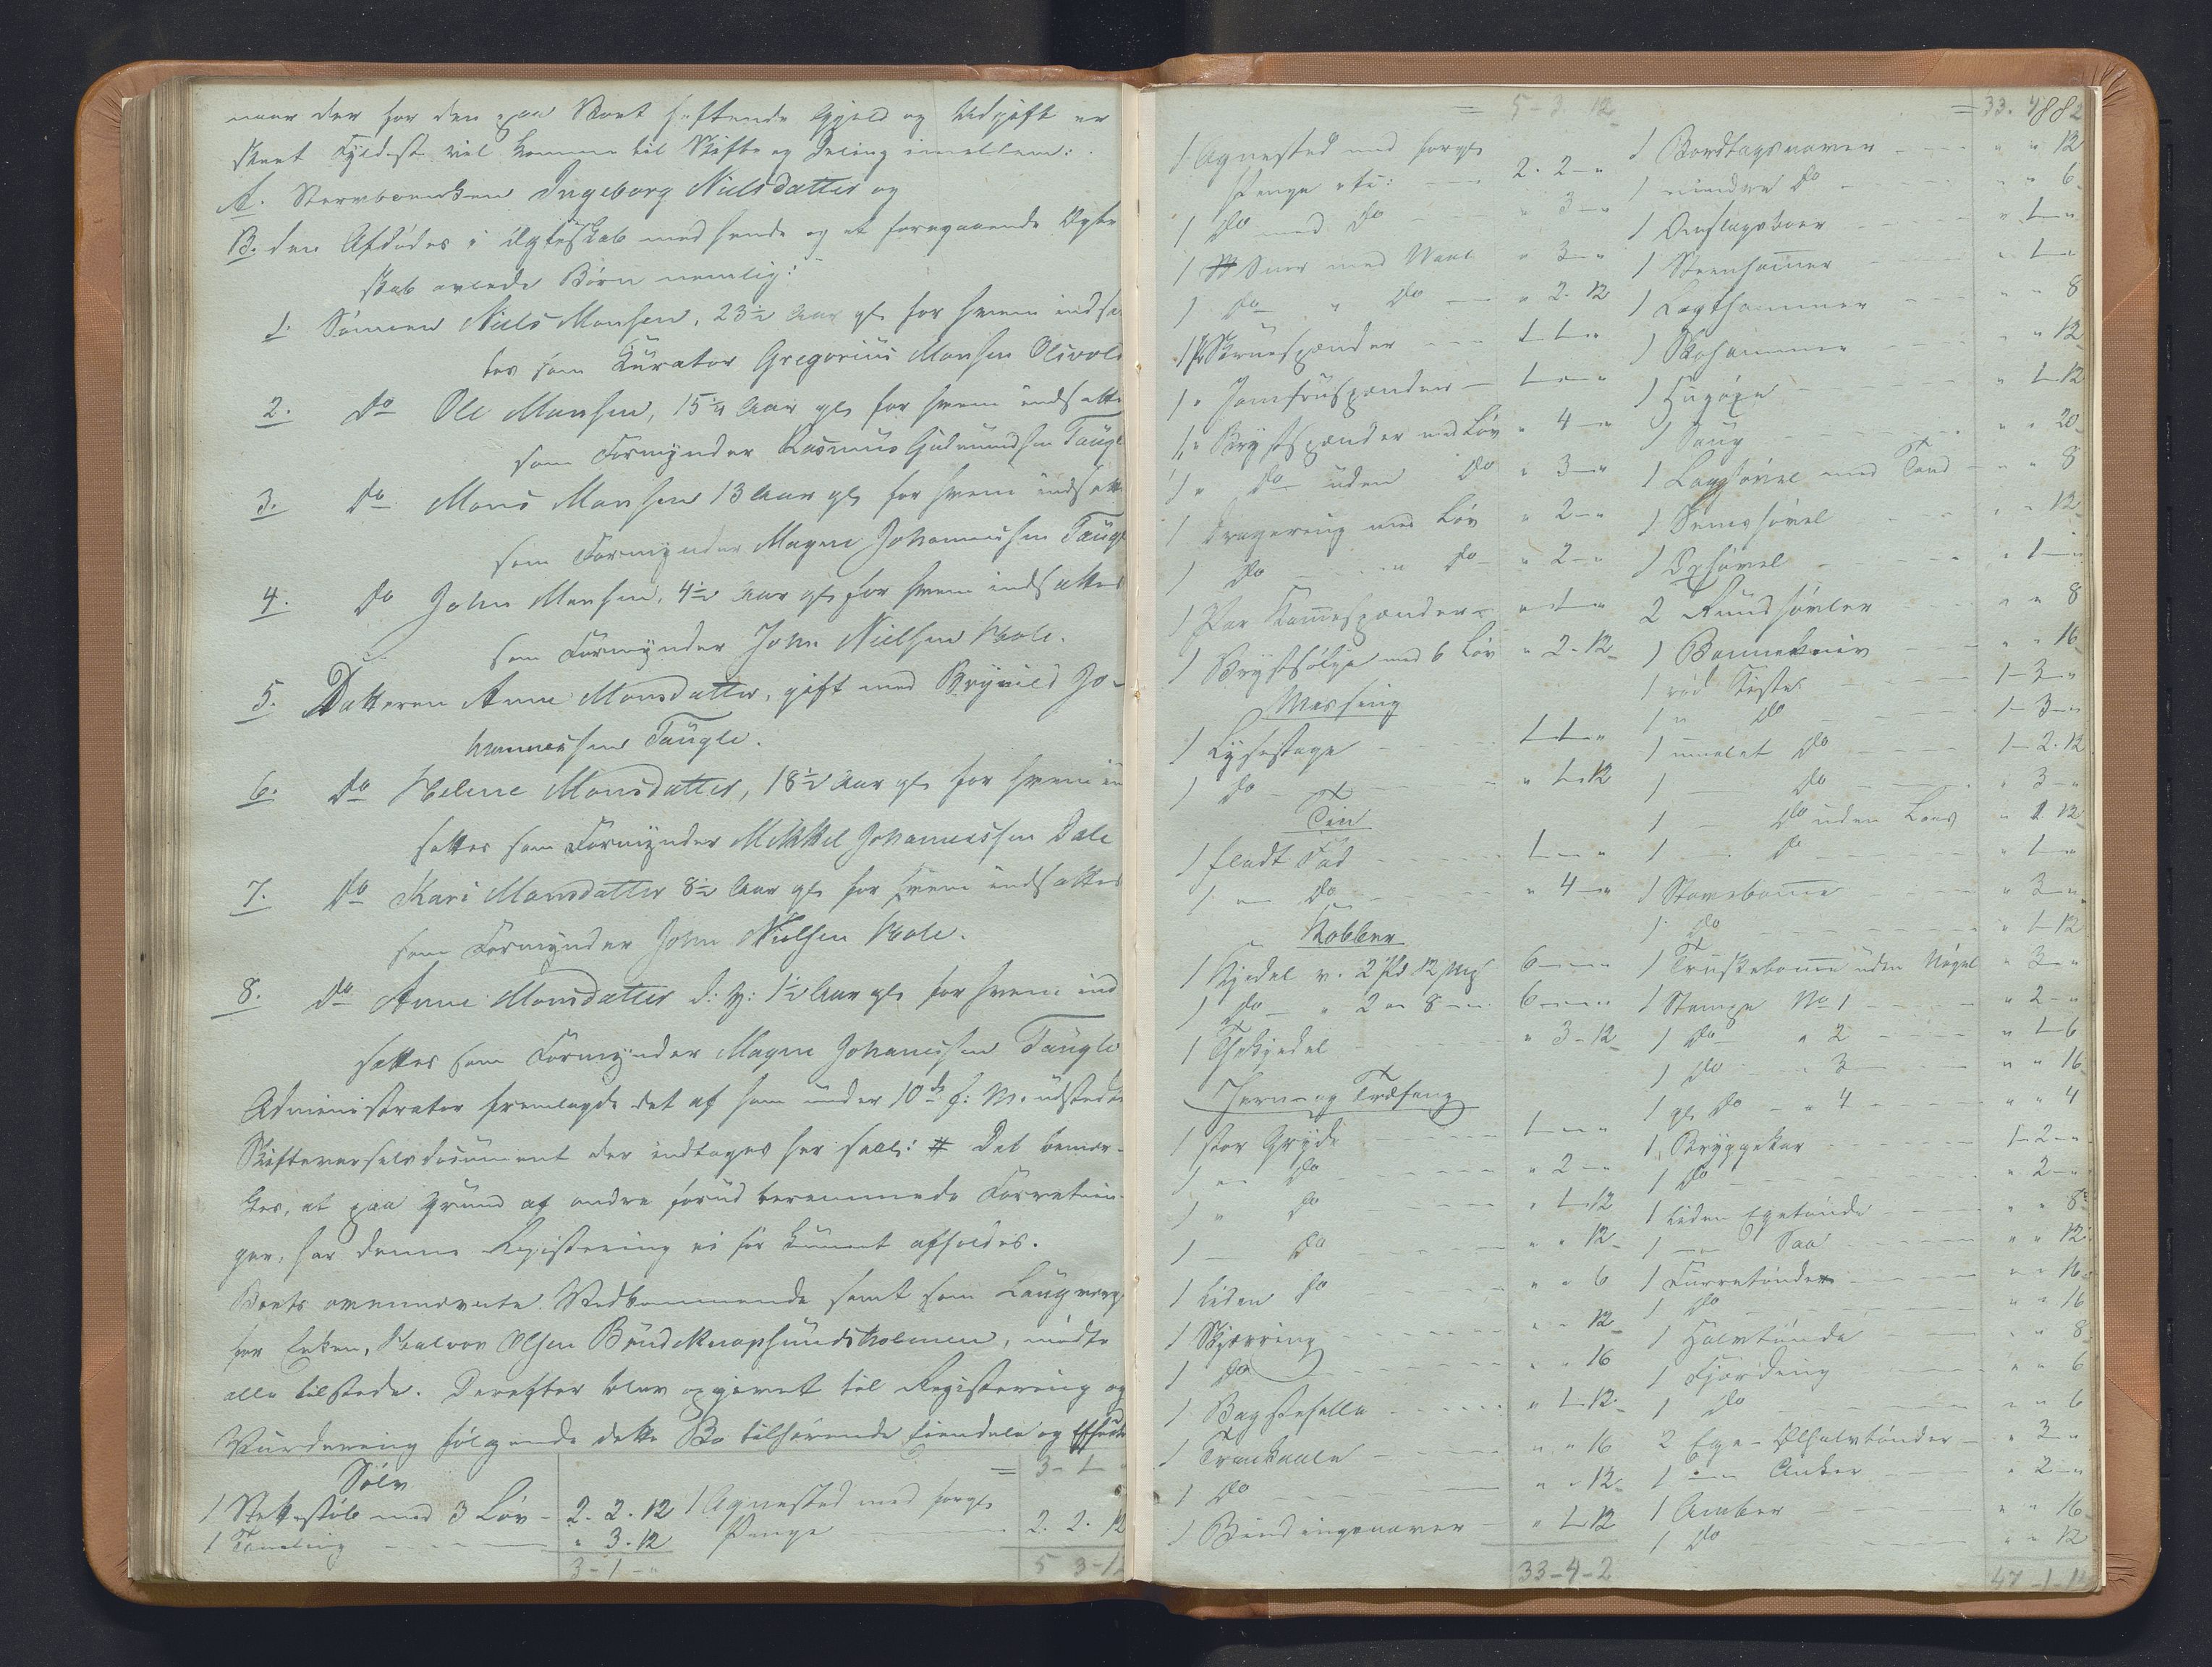 naar der for den paa Boet heftende Gjæld og Udgift er
skeet Fyldest vil komme til Skifte og Deling imellem:
A. Stervboenken Ingeborg Nielsdatter og
B. den Afdødes i Ægteskab med hende og et foregaaende Ægte
skab avlede Børn nemlig:
1. Sønnen Niels Monsen, 23½ Aar gl. for hvem indsa
tes som Kurator Gregorius Monsen
2. do Ole Monsen, 15¼ Aar gl. for hvem indsatte
som Formynder Rasmus Gudmundsen Taugl
3. do Mons Monsen 13 Aar gl. for hvem indsatt
som Formynder Magne Johannessen Taugl
4. do John Monsen, 4½ Aar gl. for hvem indsattes
som Formynder John Nielsen Hole.
5. Datteren Anne Monsdatter, gift med Brynild Jo-
hannessen Taugle.
6. do Helene Monsdatter, 18½ Aar gl. for hvem in
sattes som Formynder Mikkel Johannessen Dale
7. do Kari Monsdatter 8½ Aar gl. for hvem indsattes
som Formynder John Nielsen Hole.
8. do Anne Monsdatter d: y: 1½ Aar gl. for hvem ind
sattes som Formynder Magne Johannessen Taugle
Administrator fremlagde det af ham under 10de f: M. udstedte
Skiftevarselsdocument der indtages her saal: # Det bemær-
kes, at paa Grund af andre forud berammede Forretnin-
ger, har denne Registrering ei før kunnet afholdes.
Boets ovennævnte Vedkommende samt som Laugværge
for Enken, Halvor Olsen, mødte
alle tilstede. Derefter blev opgivet til Registrering og
Vurdering følgende dette Bo tilhørende Eiendele og Effecte
Sølv
= 3-1-"
1 Støb med 3 Løv - 2. 2. 12 1 Agnested med forgt
1 " 3. 12 Penge 2. 2. 12
3-1-" 5 3-12
= 5-3. 12
1 Agnested med forgt
Penge 2. 2-"
1 do med do " 3-"
1 Snor med " 3-"
1 do " do " 2. 12
1 Pr Skruespænder 1-1-"
1 " Jomfruspænder 1-"-"
1 " Brystspænder med Løv " 4-"
1 " do uden do " 3-"
1 Dragering med Løv " 2-"
1 do " do " 2-"
1 Par " 1-"
1 Brystsølje med 6 Løv " 2-12
Messing
1 Lysestage 1-1-"
1 do " 1-12
Tin
1 fladt Fad 1-"-"
1 do " 4-"
Kobber
1 Kjedel v. 2 Pd 12 Mrk 6-"-"
1 do " 2 " 8 " 6-"-"
1 Thekjedel " 3-12
Jern- og Træfang
1 stor Gryde 1-"-"
1 do " 2-"
1 " do " 1-12
1 do " " 12
1 liden do " " 6
1 Skjærring " " 12
1 do " " 16
1 Bagstehelle " 1-12
1 " " 16
1 do " " 12
1 " 1-12
33-4-2
= 33. 4 2
882
1 " " 12
1 mindre do " " 6
1 " 1-"
1 Steenhammer " 1-"
1 Lagthammer " " 8
1 " " 12
1 Hugøxe " 1-12
1 Saug " " 20
1 Langhøvel med Tand " " 8
1 " " 12
1 Oxhøvel " 1-"
2 Rundhøvler " " 8
1 Baandkniv " " 16
1 rød Kiste 1-3-"
1 " do 1-3-"
1 umalet do 1-2-12
1 do " 3-"
1 do uden Laas " 2 12
1 do " 1-"
1 " 3-"
1 do " 1-12
1 uden " 3-"
1 Stampe No 1 " 2-"
1 do " 2 " 1-6
1 do " 3 " " 16
1 gl. do " 4 " " 4
1 Bryggekar 1-2-"
1 do " 2-"
1 liden Egetønde " " 8
1 Saa " " 12
1 Furretønde " " 16
1 do " " 16
1 Halvtønde " " 8
1 Fjerding " " 6
1 do " " 6
2 Ege-Ølhalvtønder " 3-"
1 Anker " 2-"
1 Amber " " 16
1 do " " 12
47-1-14